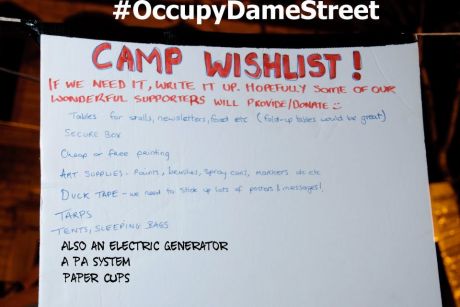 #OccupyDameStreet
CAMP WISHLIST!
IF WE NEED IT, WRITE IT UP. HOPEFULLY SOME OF OUR
WONDERFUL SUPPORTERS WILL PROVIDE/DONATE :)
Tables for stalls, newsletters, food etc (fold-up tables would be great)
SECURE BOX
Cheap or free printing
ART SUPPLIES - Paints, brushes, spray cans, markers etc etc
DUCK TAPE - we need to stick up lots of posters & messages!
TARPS
TENTS, SLEEPING BAGS
ALSO AN ELECTRIC GENERATOR
A PA SYSTEM
PAPER CUPS